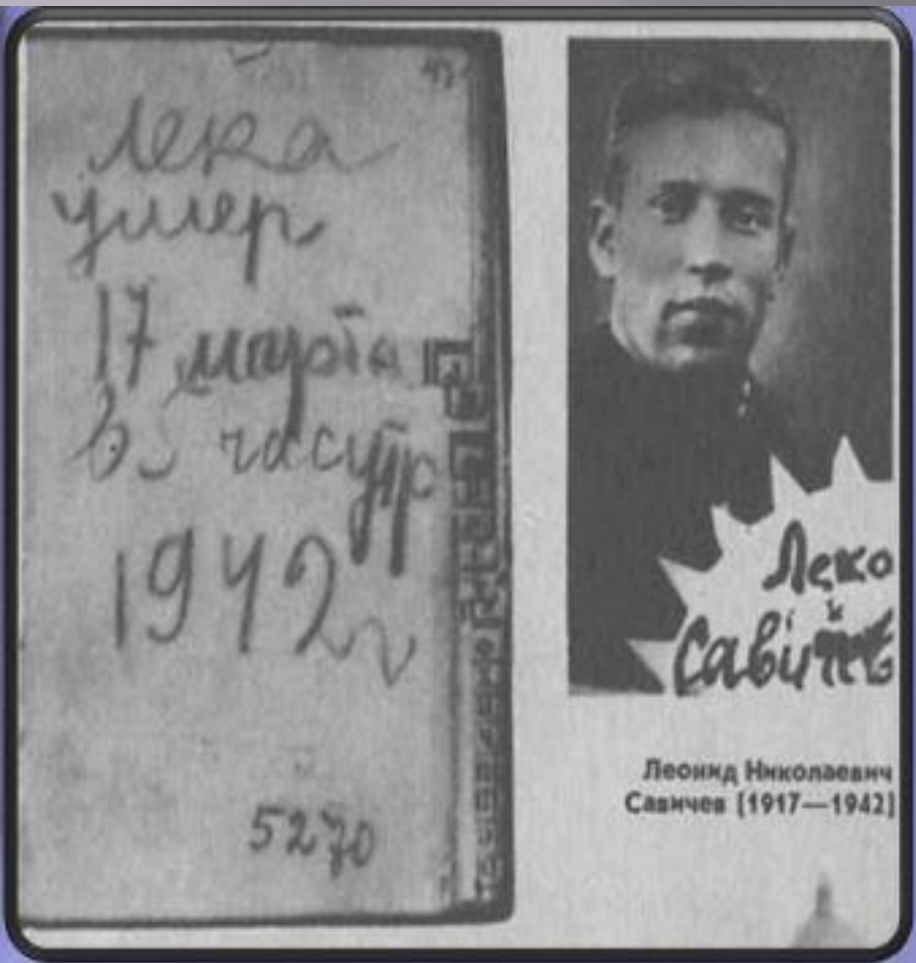 Лека
умер
17 марта
в 5 часутр
1942 г
5270
Леко
Савичев
Леонид Николаевич
Савичев [1917—1942]